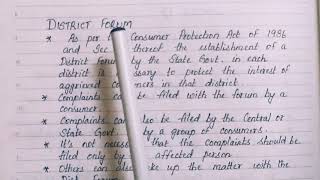 DISTRICT FORUM
* As per the Consumer Protection Act of 1986
and Sec thereof the establishment of a
District Forum by the State Govt. in each
district is necessary to protect the interest of
aggrieved consumers in that district
* Complaints can be filed with the forum by a
consumer.
* Complaints can also be filed by the Central or
State Govt. by a group of consumers.
* It's not necessary that the complaints should be
filed only by affected person
* Others can also take up the matter with the